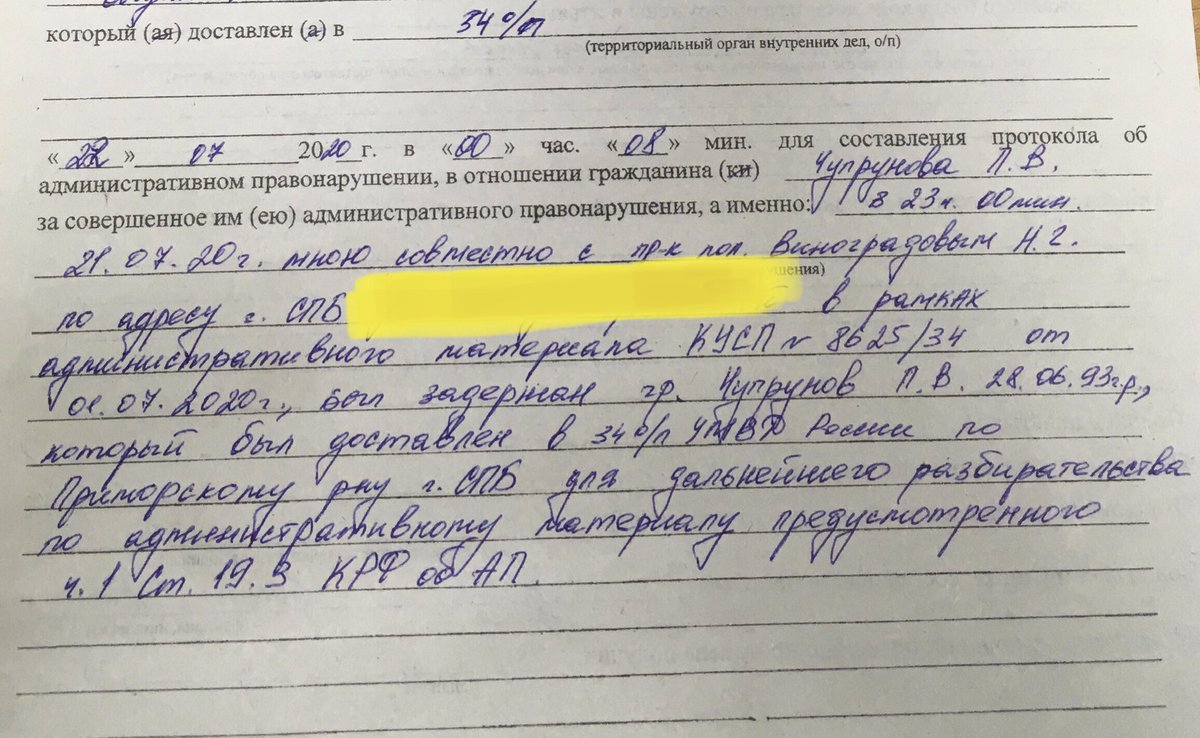 который (ая) доставлен (а) в 34 о/п
(территориальный орган внутренних дел, о/п)
« 22 » 07 2020 г. в « 00 » час. « 08 » мин. для составления протокола об
административном правонарушении, в отношении гражданина (ки) Чупрунова П. В.
за совершенное им (ею) административного правонарушения, а именно: в 23 ч. 00 мин.
21. 07. 20 г. мною совместно с пр-к пол. Виноградовым Н. Г.
по адресу г. СПБ в рамках
административного материала КУСП № 8625/34 от
01. 07. 2020 г., был задержан гр. Чупрунов П. В. 28. 06. 93 г.р.,
который был доставлен в 34 о/п УМВД России по
Приморскому р-ну г. СПБ для дальнейшего разбирательства
по административному материалу предусмотренного
ч. 1 Ст. 19. 3 КРФ об АП.